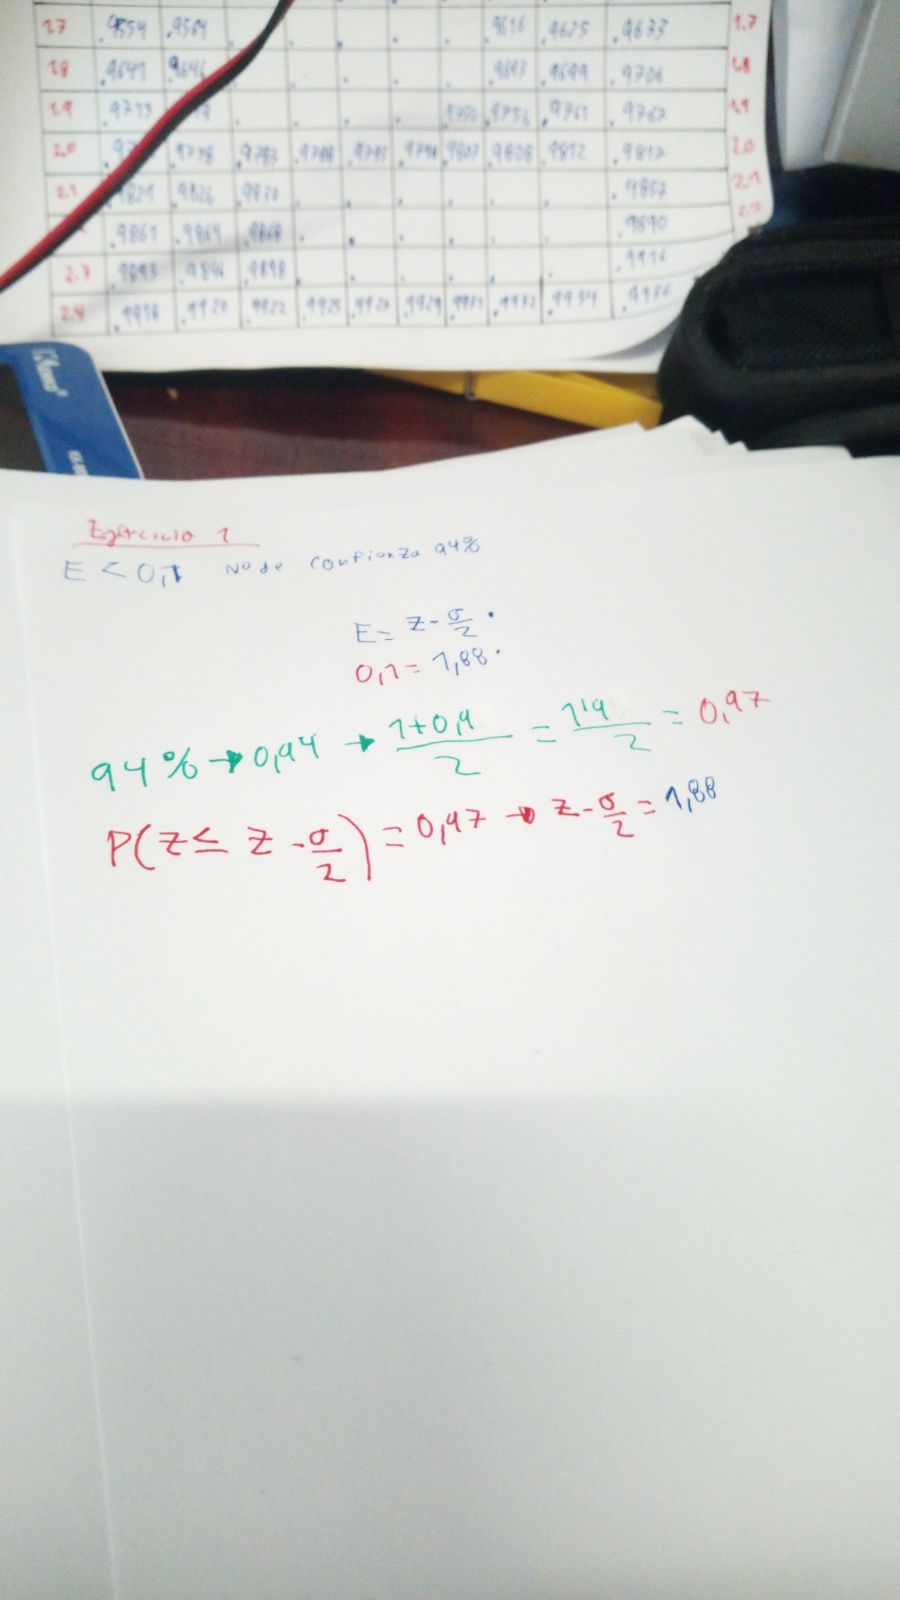 1.7 .9554 .9564 . . . . . .9616 .9625 .9633 1.7
1.8 .9641 .9646 . . . . . .9693 .9699 .9706 1.8
1.9 .9713 . . . . .9750 .9756 .9761 .9767 1.9
2.0 .9778 .9783 .9788 .9793 .9798 .9803 .9808 .9812 .9817 2.0
2.1 .9821 .9826 .9830 . . . . . . .9857 2.1
.9861 .9864 .9868 . . . . . . .9890
2.3 .9893 .9896 .9898 . . . . . . .9916
2.4 .9918 .9920 .9922 .9925 .9929 .9931 .9932 .9934 .9936
Ejercicio 1
E < 0,1 No de confianza 94%
E = z - σ/2 ·
0,1 = 1,88 ·
94% → 0,94 → 1+0,9/2 = 1'9/2 = 0,97
P(z ≤ z - σ/2) = 0,97 → z - σ/2 = 1,88